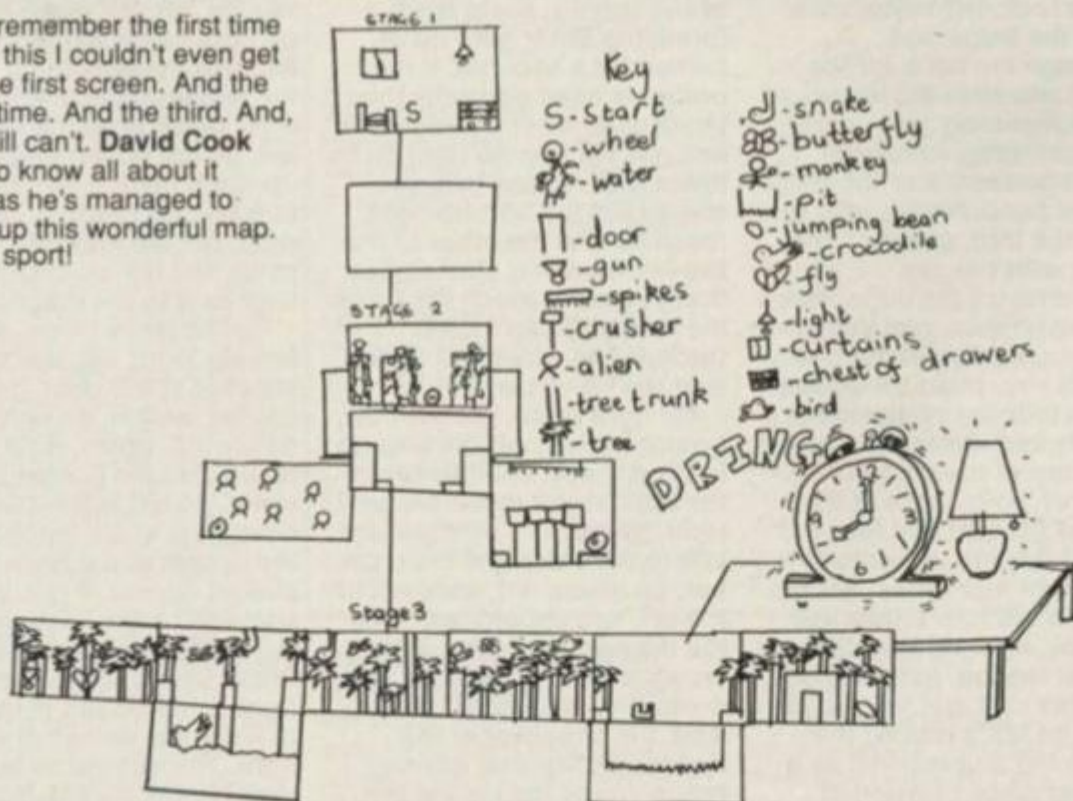 remember the first time
this I couldn't even get
e first screen. And the
time. And the third. And,
ill can't. David Cook
o know all about it
as he's managed to
up this wonderful map.
sport!
STAGE 1
S
STAGE 2
Stage 3
Key
S - Start
- wheel
- water
- door
- gun
- spikes
- crusher
- alien
- tree trunk
- tree
- snake
- butterfly
- monkey
- pit
- jumping bean
- crocodile
- fly
- light
- curtains
- chest of drawers
- bird
DRING
12
3
6
9